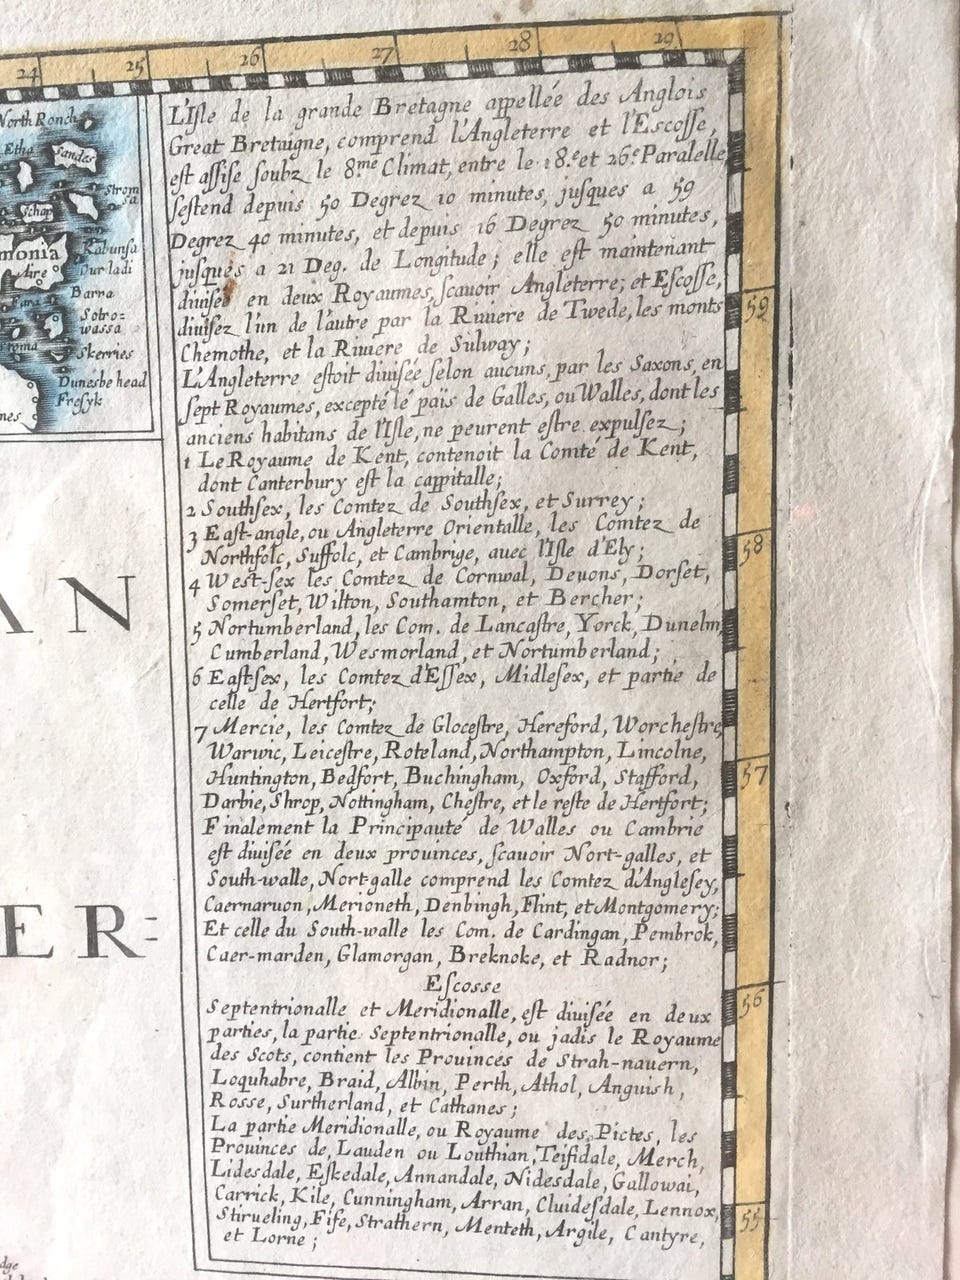 24 25 26 27 28 29
North Ronch
Etha
Sandes
Strom
sa
Schap
monia
Kabunsa
Aire
Our ladi
Fara
Barra
Sotro=
wassa
Skerries
Dunesbe head
Fresyk
nes
L'Isle de la grande Bretagne appellée des Anglois
Great Bretaigne, comprend l'Angleterre et l'Escosse,
est assise soubz le 8.me Climat, entre le 18.e et 26.e Paralelle,
sestend depuis 50 Degrez 10 minutes, jusques a 59
Degrez 40 minutes, et depuis 16 Degrez 50 minutes,
jusques a 21 Deg. de Longitude; elle est maintenant
diuisée en deux Royaumes, scauoir Angleterre; et Escosse,
diuisez l'un de l'autre par la Riuiere de Twede, les monts
Chemothe, et la Riuiere de Sulway;
L'Angleterre estoit diuisée selon aucuns, par les Saxons, en
sept Royaumes, excepté le païs de Galles, ou Walles, dont les
anciens habitans de l'Isle, ne peurent estre expulsez;
1 Le Royaume de Kent, contenoit la Comté de Kent,
dont Canterbury est la cappitalle;
2 Southsex, les Comtez de Southsex, et Surrey;
3 East-angle, ou Angleterre Orientalle, les Comtez de
Northfolc, Suffolc, et Cambrige, auec l'Isle d'Ely;
4 West-sex les Comtez de Cornwal, Deuons, Dorset,
Somerset, Wilton, Southamton, et Bercher;
5 Nortumberland, les Com. de Lancastre, Yorck, Dunelm,
Cumberland, Wesmorland, et Nortumberland;
6 East-sex, les Comtez d'Essex, Midlesex, et partie de
celle de Hertfort;
7 Mercie, les Comtez de Glocestre, Hereford, Worchestre,
Warwic, Leicestre, Roteland, Northampton, Lincolne,
Huntington, Bedfort, Buchingham, Oxford, Stafford,
Darbie, Shrop, Nottingham, Chestre, et le reste de Hertfort;
Finalement la Principauté de Walles ou Cambrie
est diuisée en deux prouinces, scauoir Nort-galles, et
South-walle, Nort-galle comprend les Comtez d'Anglesey,
Caernaruon, Merioneth, Denbingh, Flint, et Montgomery;
Et celle du South-walle les Com. de Cardingan, Pembrok,
Caer-marden, Glamorgan, Breknoke, et Radnor;
Escosse
Septentrionalle et Meridionalle, est diuisée en deux
parties, la partie Septentrionalle, ou jadis le Royaume
des Scots, contient les Prouinces de Strah-nauern,
Loquhabre, Braid, Albin, Perth, Athol, Anguish,
Rosse, Surtherland, et Cathanes;
La partie Meridionalle, ou Royaume des Pictes, les
Prouinces de Lauden ou Louthian, Teifidale, Merch,
Lidesdale, Eskedale, Annandale, Nidesdale, Gallowai,
Carrick, Kile, Cunningham, Arran, Cluidesdale, Lennox,
Stirueling, Fife, Strathern, Menteth, Argile, Cantyre,
et Lorne;
59
58
57
56
55
AN
ER:
dge